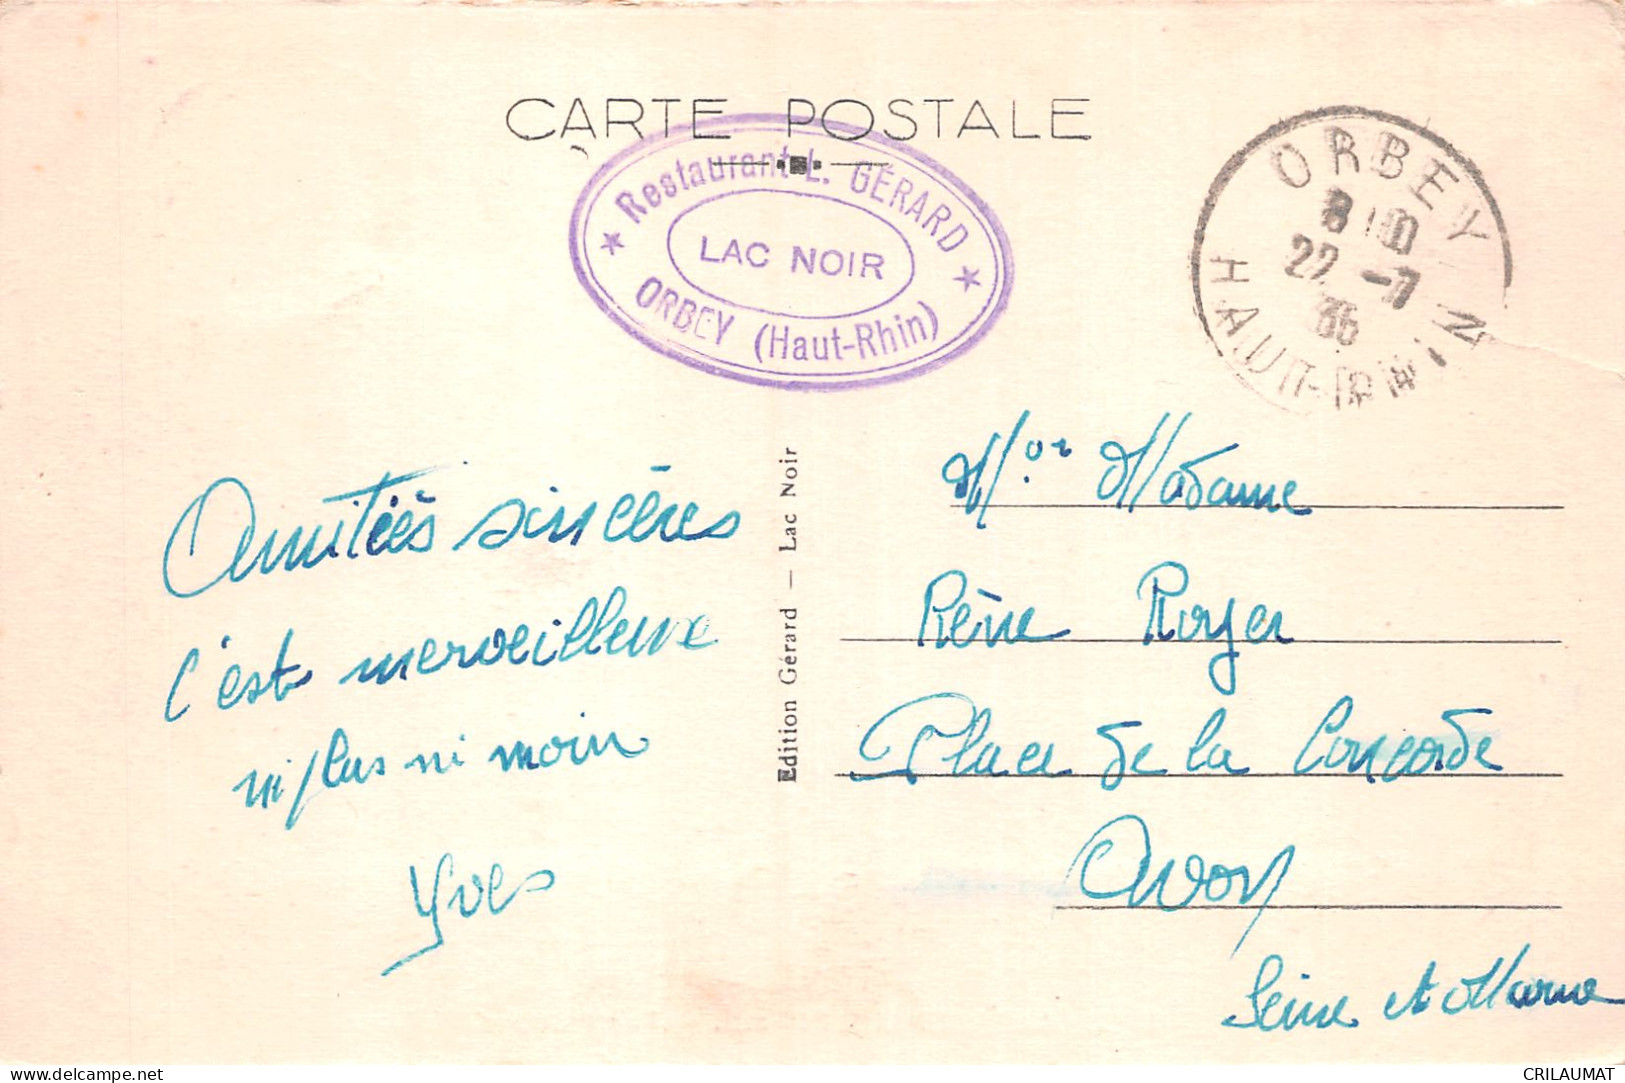 CARTE POSTALE
Restaurant L. GÉRARD
LAC NOIR
ORBEY (Haut-Rhin)
ORBEY
22 -7
36
HAUT-RHIN
Amitiés sincères
c'est merveilleux
ni plus ni moin
Yves
Edition Gérard — Lac Noir
Mr Madame
Réne Royer
Place de la Concorde
Avon
Seine et Marne
www.delcampe.net
CRILAUMAT